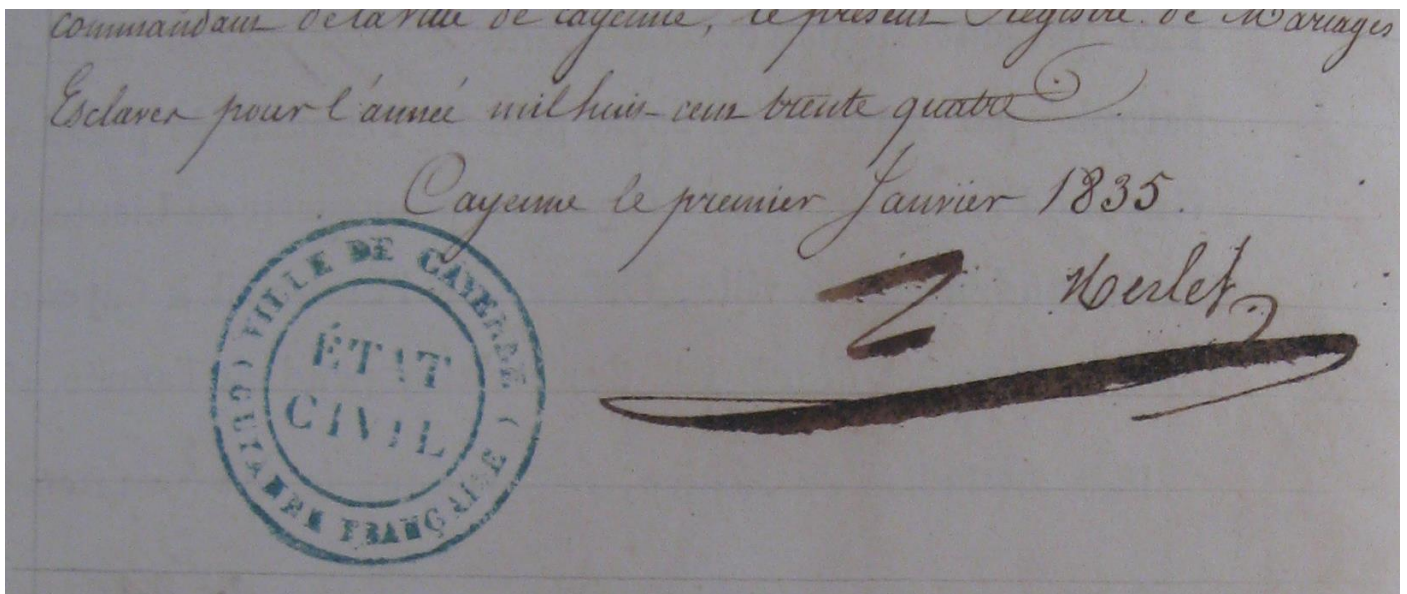 commandant de la ville de Cayenne, le présent Registre de Mariages
Esclaves pour l'année mil huit cent trente quatre.
Cayenne le premier Janvier 1835.
Merlet
VILLE DE CAYENNE
ÉTAT
CIVIL
(GUIANE FRANÇAISE)